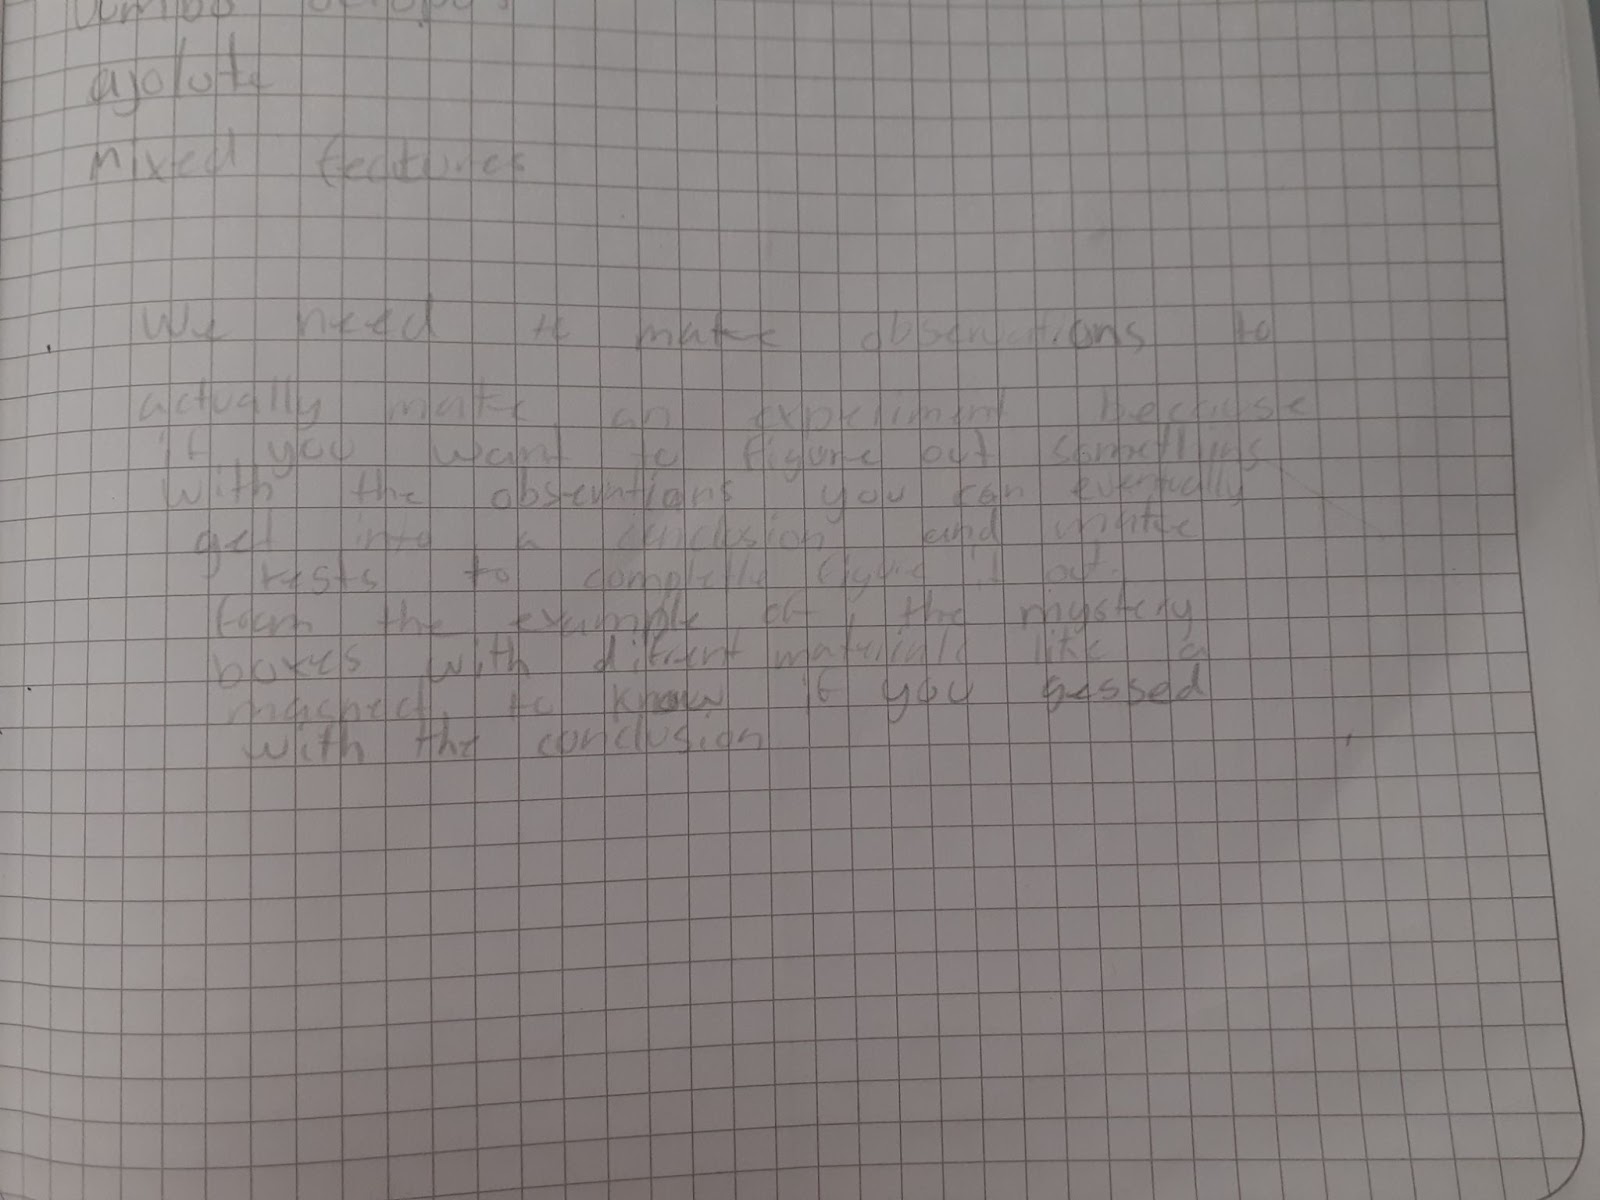 ajolote
mixed features
We need to make observations to
actually make an experiment because
if you want to figure out something
with the observations you can eventually
get into a conclusion and make
tests to completly figure it out.
the example of the mystery
boxes with difirent materials like a
magnect to know if you gessed
with the conclusion